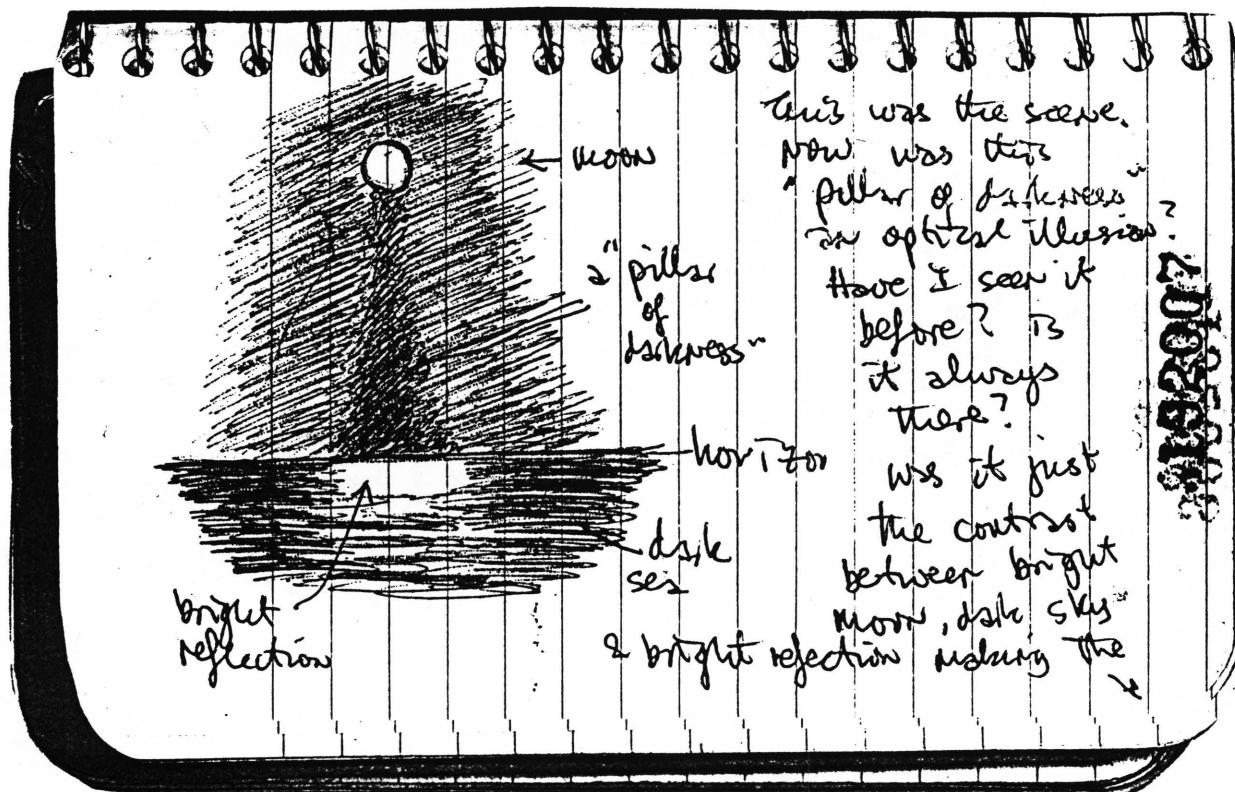 ← moon
a "pillar
of
darkness"
horizon
dark
sea
bright
reflection
This was the scene.
Now was this
"pillar of darkness"
an optical illusion?
Have I seen it
before? Is
it always
there?
was it just
the contrast
between bright
moon, dark sky
& bright reflection making the